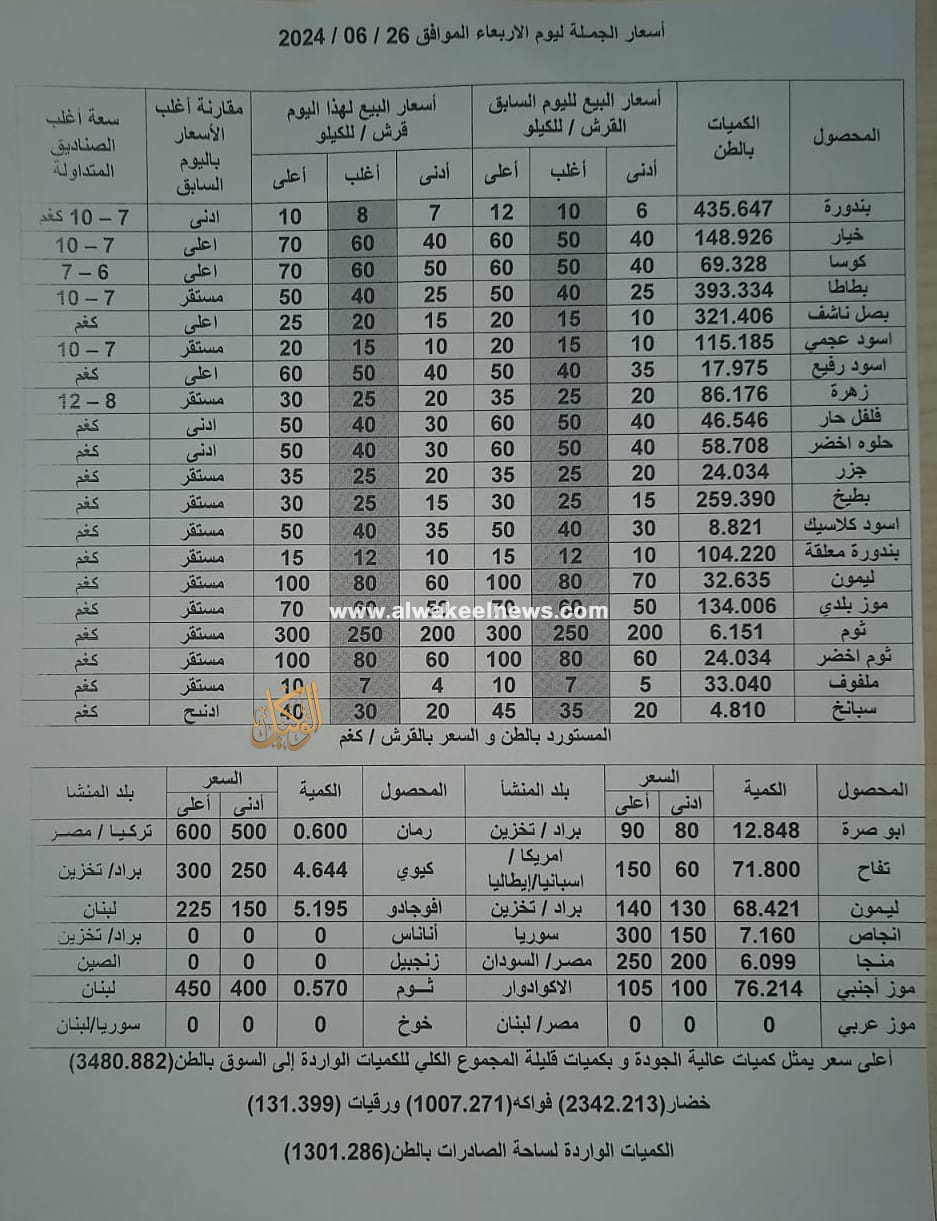 أسعار الجملة ليوم الاربعاء الموافق 26 / 06 / 2024
المحصول الكميات بالطن أسعار البيع لليوم السابق القرش / للكيلو أسعار البيع لهذا اليوم قرش / للكيلو مقارنة أغلب الأسعار باليوم السابق سعة أغلب الصناديق المتداولة
أدنى أغلب أعلى أدنى أغلب أعلى
بندورة 435.647 6 10 12 7 8 10 ادنى 7 – 10 كغم
خيار 148.926 40 50 60 40 60 70 اعلى 7 – 10
كوسا 69.328 40 50 60 50 60 70 اعلى 6 – 7
بطاطا 393.334 25 40 50 25 40 50 مستقر 7 – 10
بصل ناشف 321.406 10 15 20 15 20 25 اعلى كغم
اسود عجمي 115.185 10 15 20 10 15 20 مستقر 7 – 10
اسود رفيع 17.975 35 40 50 40 50 60 اعلى كغم
زهرة 86.176 20 25 35 20 25 30 مستقر 8 – 12
فلفل حار 46.546 40 50 60 30 40 50 ادنى كغم
حلوه اخضر 58.708 40 50 60 30 40 50 ادنى كغم
جزر 24.034 20 25 35 20 25 35 مستقر كغم
بطيخ 259.390 15 25 30 15 25 30 مستقر كغم
اسود كلاسيك 8.821 30 40 50 35 40 50 مستقر كغم
بندورة معلقة 104.220 10 12 15 10 12 15 مستقر كغم
ليمون 32.635 70 80 100 60 80 100 مستقر كغم
موز بلدي 134.006 50 70 70 مستقر كغم
www.alwakeelnews.com
ثوم 6.151 200 250 300 200 250 300 مستقر كغم
ثوم اخضر 24.034 60 80 100 60 80 100 مستقر كغم
ملفوف 33.040 5 7 10 4 7 10 مستقر كغم
سبانخ 4.810 20 35 45 20 30 40 ادنىح كغم
الوكيل
المستورد بالطن و السعر بالقرش / كغم
المحصول الكمية السعر بلد المنشأ المحصول الكمية السعر بلد المنشا
ادنى أعلى أدنى أعلى
ابو صرة 12.848 80 90 براد / تخزين رمان 0.600 500 600 تركيا / مصر
تفاح 71.800 60 150 امريكا / اسبانيا/إيطاليا كيوي 4.644 250 300 براد/ تخزين
ليمون 68.421 130 140 براد / تخزين افوجادو 5.195 150 225 لبنان
انجاص 7.160 150 300 سوريا أناناس 0 0 0 براد/ تخزين
منجا 6.099 200 250 مصر/ السودان زنجبيل 0 0 0 الصين
موز أجنبي 76.214 100 105 الاكوادوار ثوم 0.570 400 450 لبنان
موز عربي 0 0 0 مصر/ لبنان خوخ 0 0 0 سوريا/لبنان
أعلى سعر يمثل كميات عالية الجودة و بكميات قليلة المجموع الكلي للكميات الواردة إلى السوق بالطن(3480.882)
خضار(2342.213) فواكه(1007.271) ورقيات (131.399)
الكميات الواردة لساحة الصادرات بالطن(1301.286)